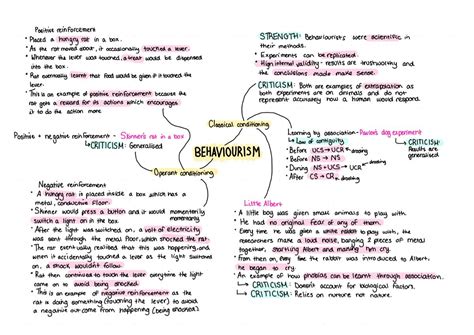 Positive reinforcement
• Placed a hungry rat in a box.
• As the rat moved about, it occasionally touched a lever.
• Whenever the lever was touched, a treat would be dispensed
into the box.
• Rat eventually learnt that food would be given if it touched the
lever.
• This is an example of positive reinforcement because the
rat gets a reward for its actions which encourages
it to do the action more
STRENGTH: Behaviourists were scientific in
their methods.
• Experiments can be replicated.
• High internal validity - results are trustworthy and
the conclusions made make sense.
CRITICISM: Both are examples of extrapolation as
both experiments are on animals and do not
represent accurately how a human would respond.
Classical conditioning
Positive + negative reinforcement - Skinner's rat in a box
CRITICISM: Generalised
BEHAVIOURISM
Operant conditioning
Learning by association - Pavlov's dog experiment
Law of contiguity
• Before UCS → UCR drooling
• Before NS → NS
• During NS + UCS → UCR drooling
• After CS → CR drooling
CRITICISM
Results are
generalised
Negative reinforcement
• A hungry rat is placed inside a box which has a
metal, conductive floor.
• Skinner would press a button and it would momentarily
switch a light on in the box.
• After the light was switched on, a volt of electricity
was sent through the metal floor, which shocked the rat.
• The rat eventually realised that this was happening, and
when it accidentally touched a lever as the light switched
on, a shock wouldn't follow.
• Rat then continued to touch the lever everytime the light
came on to avoid being shocked.
• This is an example of negative reinforcement as the
rat is doing something (touching the lever) to avoid
a negative out-come from happening (being shocked)
Little Albert
• A little boy was given small animals to play with.
• He had no original fear of any of them.
• Every time he was given a white rabbit to play with, the
researchers made a loud noise, banging 2 pieces of metal
together, startling Albert and making him cry.
• From then on, every time the rabbit was introduced to Albert,
he began to cry.
• An example of how phobias can be learnt through association.
CRITICISM: Doesn't account for biological factors.
CRITICISM: Relies on nurture not nature.